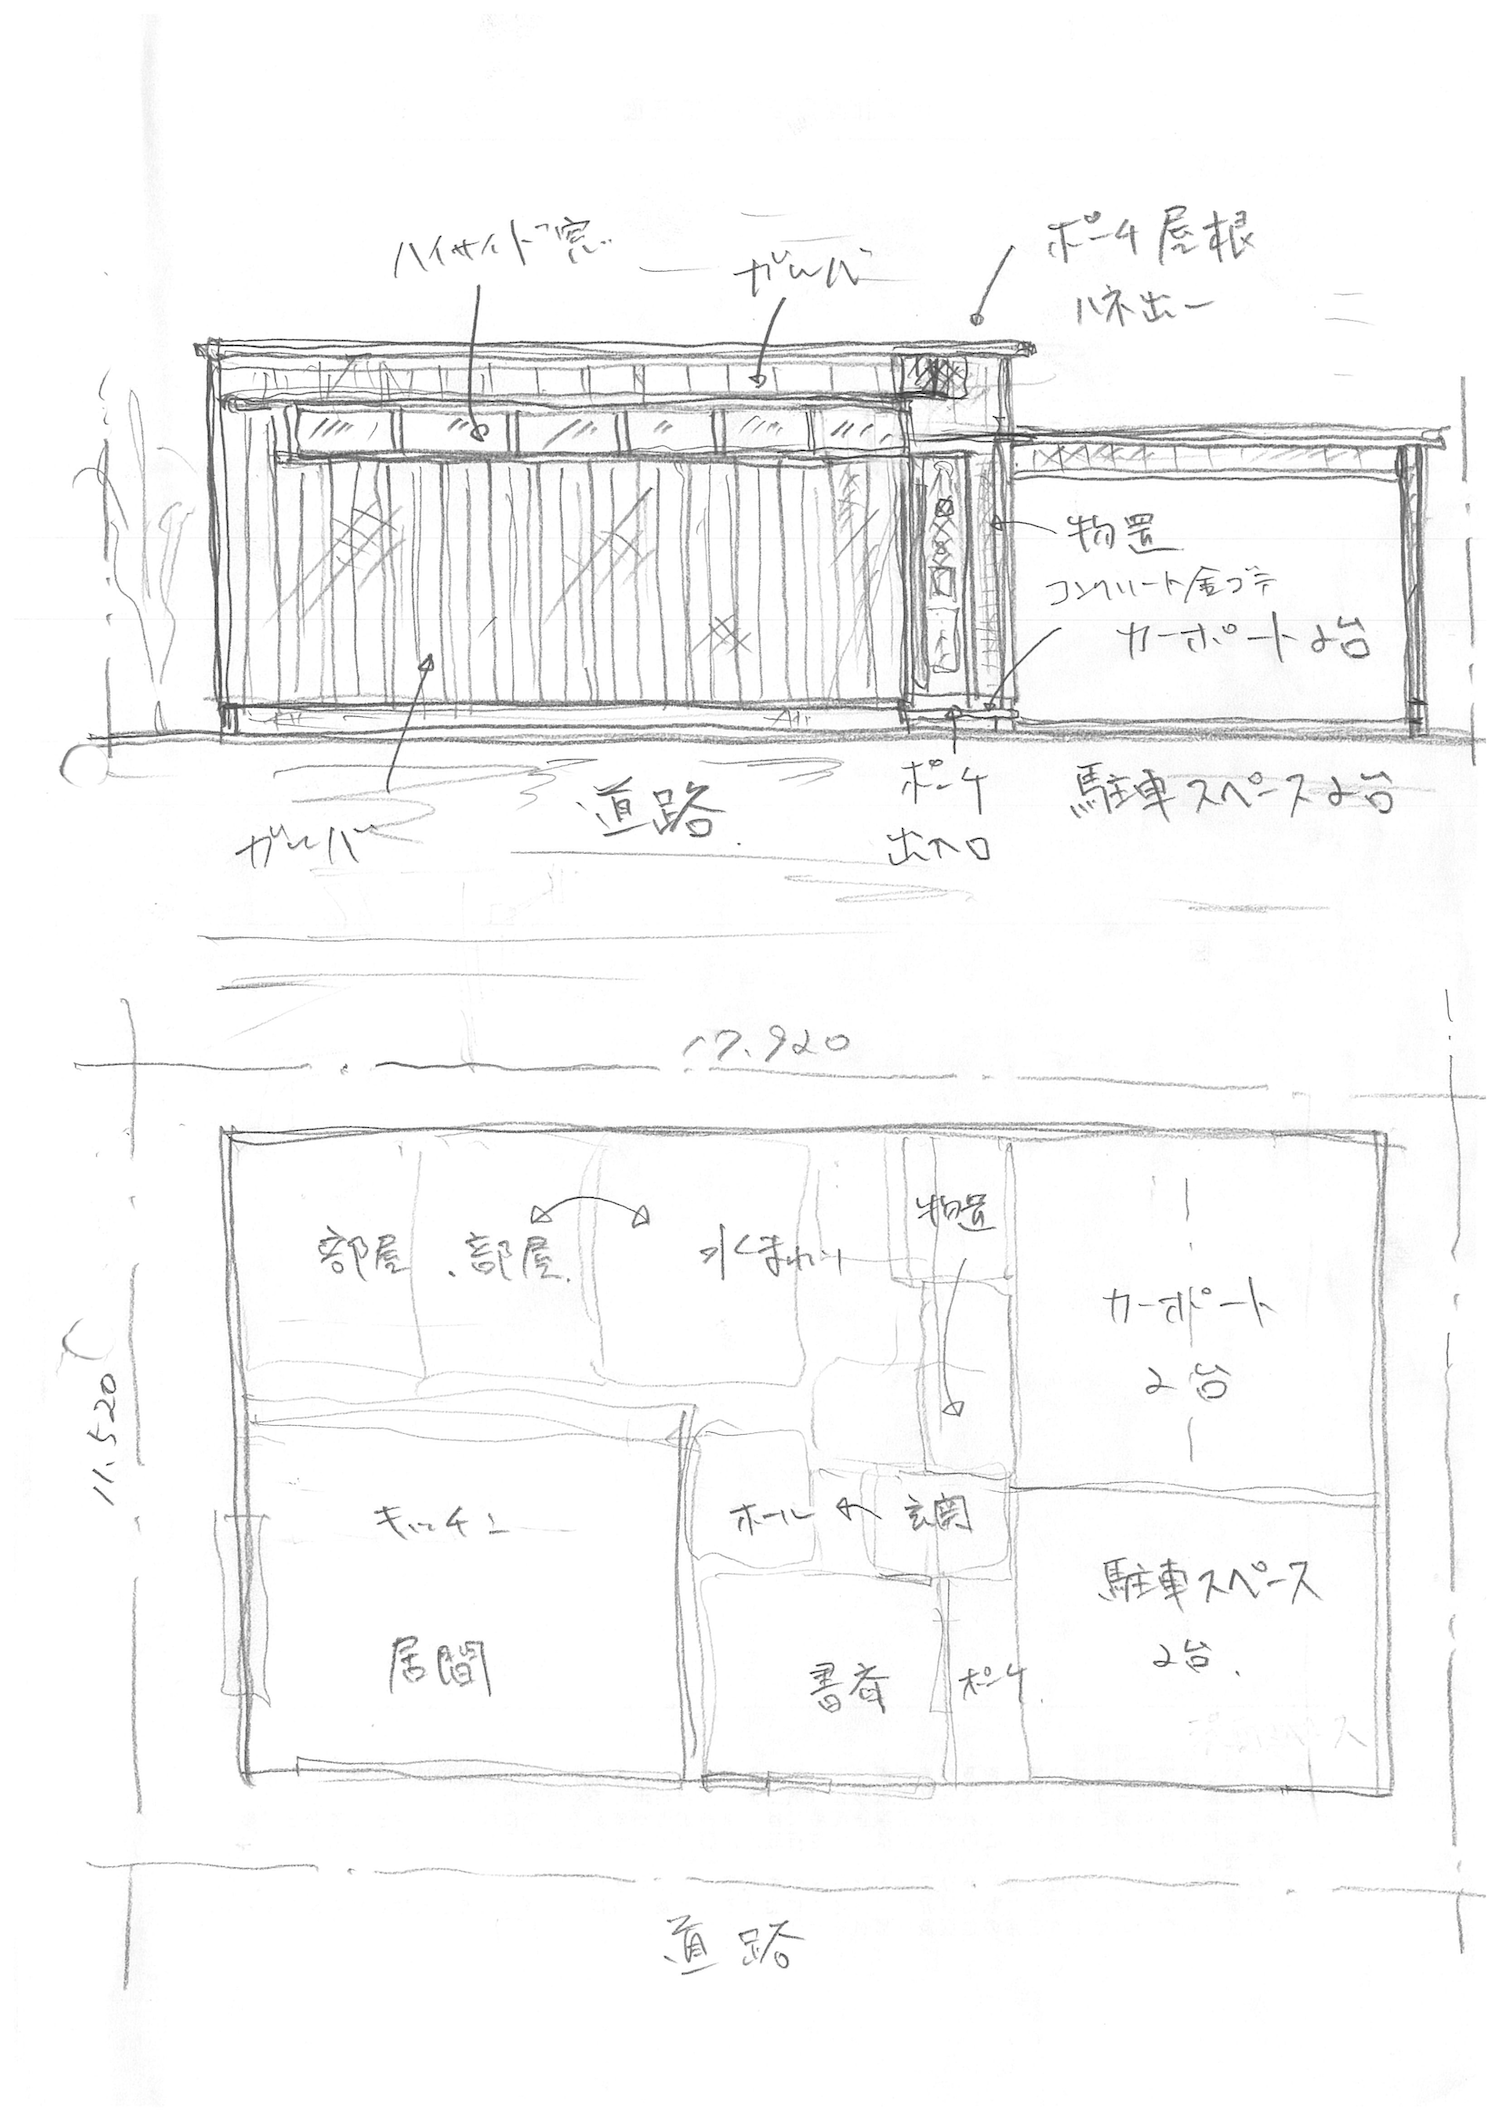 ハイサイド窓
ガルバ
ポーチ屋根
ハネ出し
物置
コンクリート金ゴテ
カーポート2台
ガルバ
道路
ポーチ
出入口
駐車スペース2台
17.920
11.520
部屋・部屋
水まわり
物置
カーポート
2台
キッチン
ホール
玄関
駐車スペース
2台
居間
書斎
ポーチ
道路